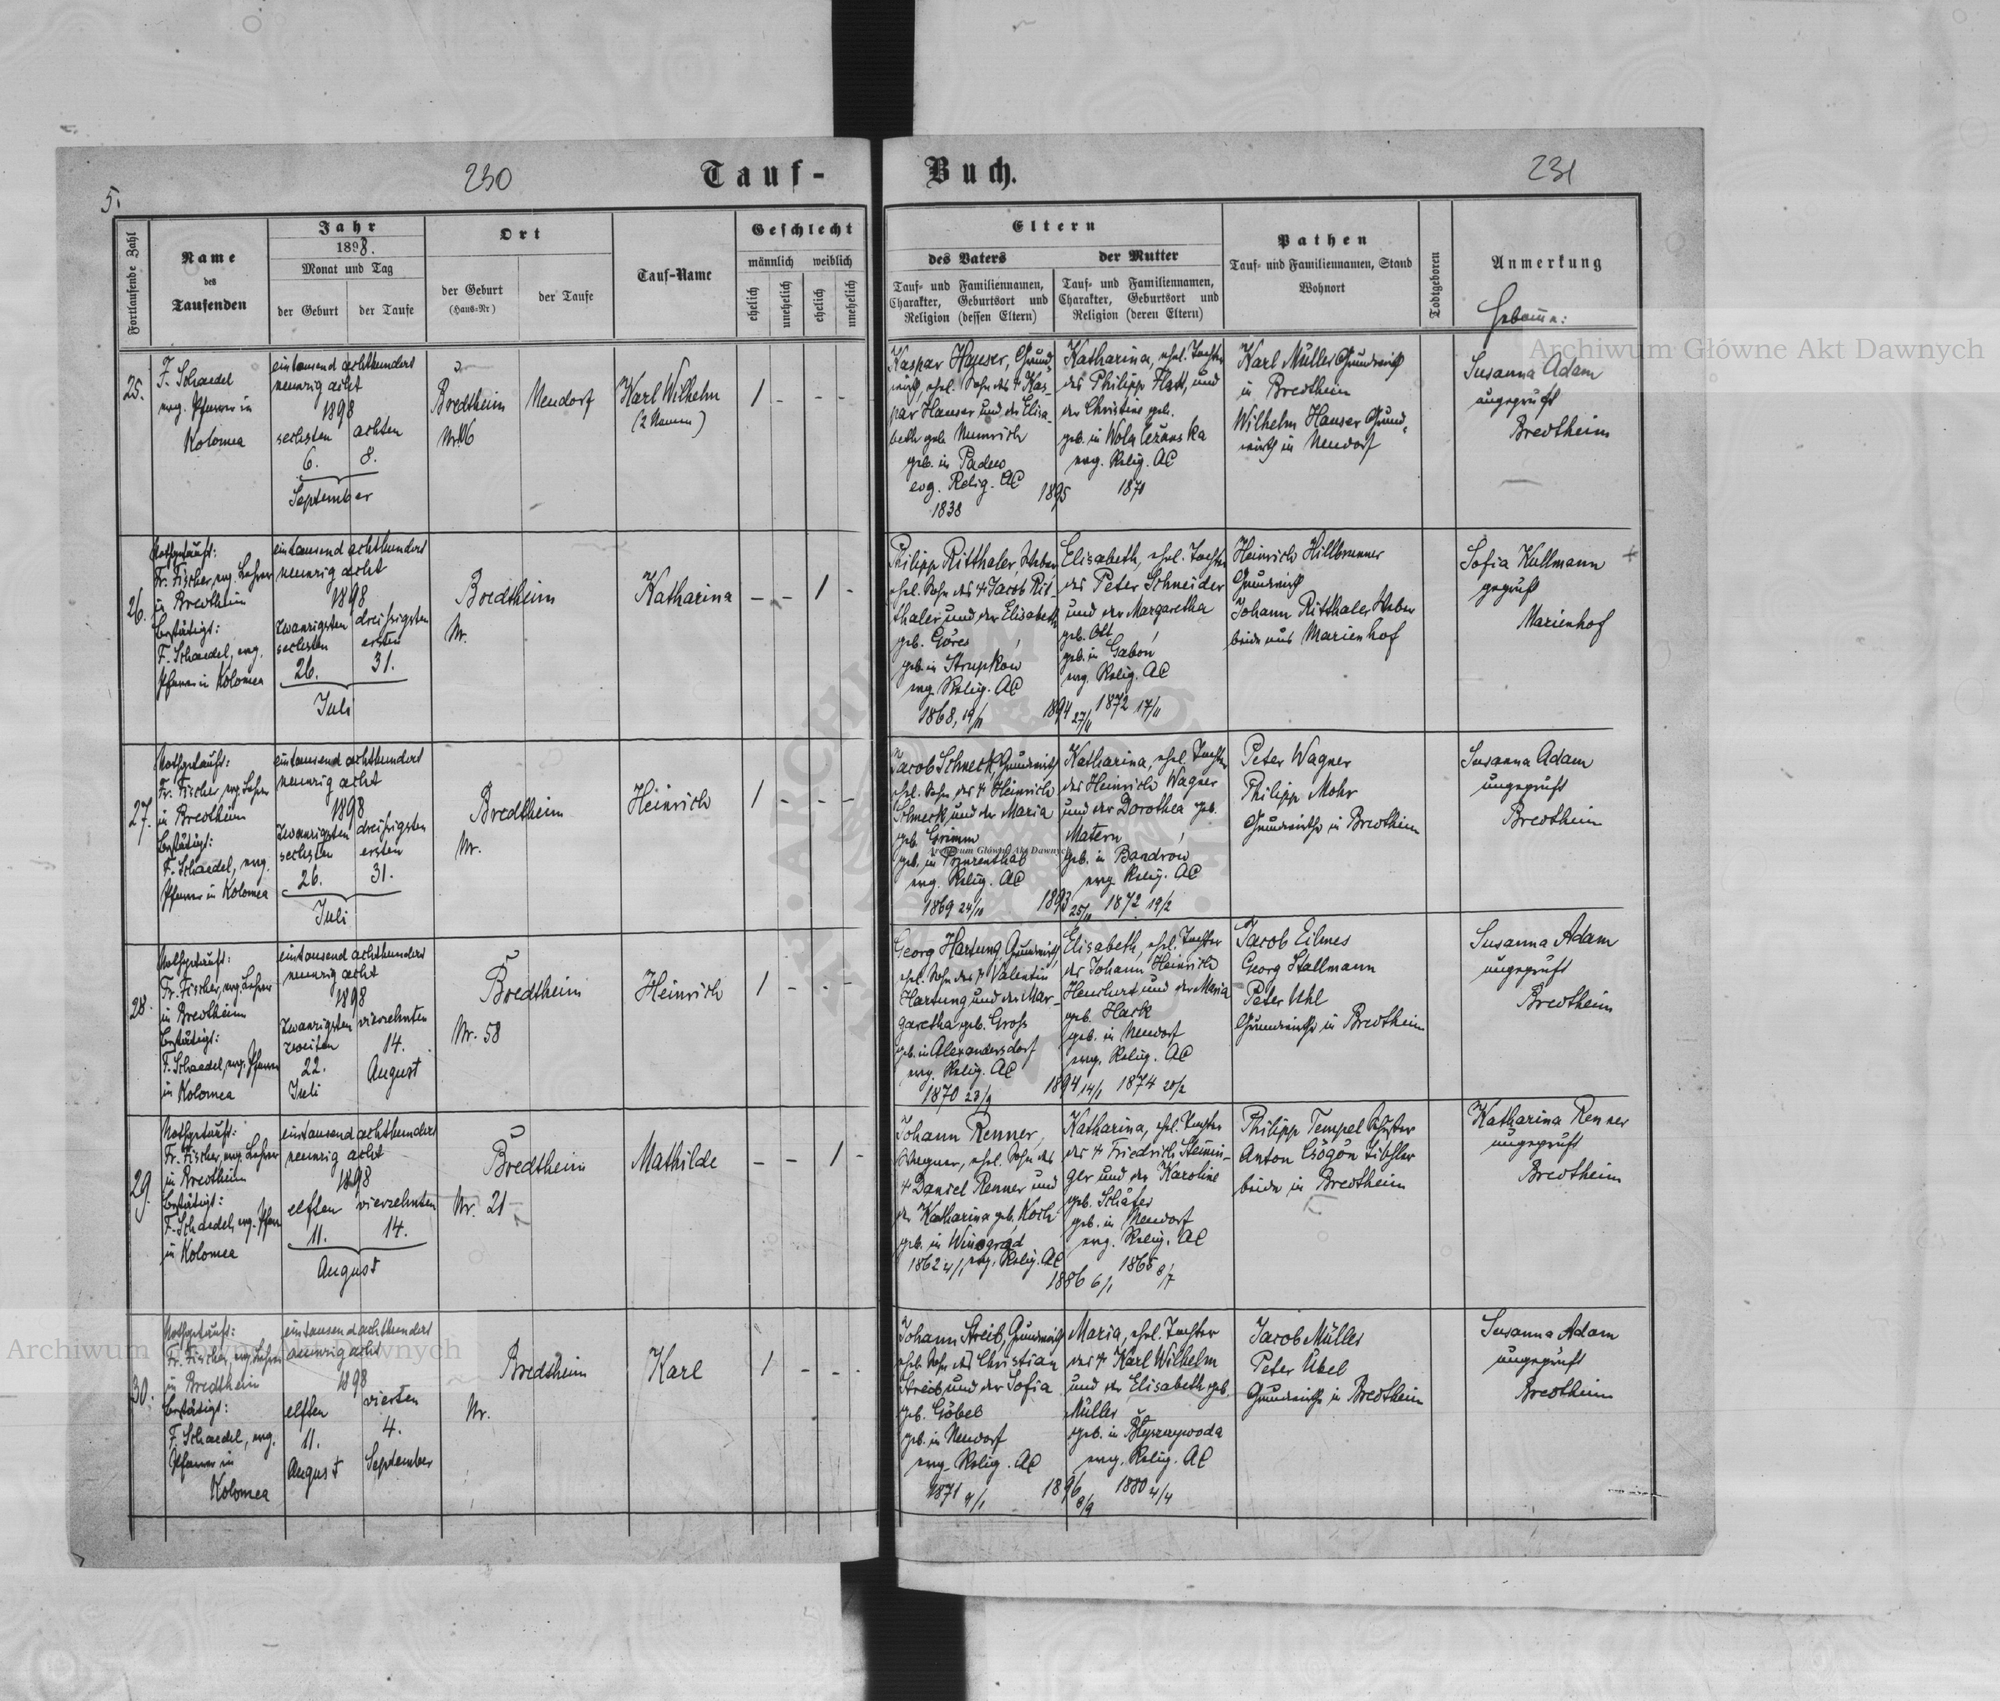 5.
230
Tauf-
Buch.
231
Fortlaufende Zahl
Name
des
Taufenden
Jahr
1898.
Monat und Tag
der Geburt
der Taufe
Ort
der Geburt
(Haus-Nr)
der Taufe
Tauf-Name
Geschlecht
männlich weiblich
ehelich
unehelich
ehelich
unehelich
Eltern
des Vaters
Tauf- und Familiennamen,
Charakter, Geburtsort und
Religion (dessen Eltern)
der Mutter
Tauf- und Familiennamen,
Charakter, Geburtsort und
Religion (deren Eltern)
Pathen
Tauf- und Familiennamen, Stand
Wohnort
Todtgeboren
Anmerkung
Hebamme:
Archiwum Główne Akt Dawnych
25.
F. Schaedel
evg. Pfarrer in
Kolomea
eintausend achthundert
neunzig acht
1898
sechsten achten
6. 8.
September
Bredtheim
Neudorf
Karl Wilhelm
(2 Namen)
1 - - -
Kaspar Hauser, Grund-
wirth, ehel. Sohn des † Kas-
par Hauser und der Elisa-
beth geb.
geb. in Padew
evg. Relig. AC
1838
1895
Katharina, ehel. Tochter
des Philipp und
der Christine geb.
geb. in
evg. Relig. AC
1871
Karl Müller Grundwirth
in Bredtheim
Wilhelm Hauser Grund-
wirth in Neudorf
Susanna Adam
ungeprüft
Bredtheim
26.
Nothgetauft:
Fr. Fischer, evg. Lehrer
in Bredtheim
Bestätigt:
F. Schaedel, evg.
Pfarrer in Kolomea
eintausend achthundert
neunzig acht
1898
zwanzigsten dreißigsten
sechsten ersten
26. 31.
Juli
Bredtheim
Nr.
Katharina
- - 1 -
Philipp Ritthaler, Weber
ehel. Sohn des † Jacob Rit-
thaler und der Elisabeth
geb. Göres
geb. in Strupków
evg. Relig. AC
1868, 19/11
1894 27/11
Elisabeth, ehel. Tochter
des Peter Schneider
und der Margaretha
geb. Ott
geb. in
evg. Relig. AC
1872 17/11
Heinrich Hillbrunner
Grundwirth
Johann Ritthaler Weber
beide aus Marienhof
Sofia Kullmann
geprüft
Marienhof
27.
Nothgetauft:
Fr. Fischer, evg. Lehrer
in Bredtheim
Bestätigt:
F. Schaedel, evg.
Pfarrer in Kolomea
eintausend achthundert
neunzig acht
1898
zwanzigsten dreißigsten
sechsten ersten
26. 31.
Juli
Bredtheim
Nr.
Heinrich
1 - - -
Jacob Schneck, Grundwirth
ehel. Sohn des † Heinrich
Schneck und der Maria
geb. Grimm
geb. in
evg. Relig. AC
1869 24/10
1893 25/11
Katharina, ehel. Tochter
des Heinrich Wagner
und der Dorothea geb.
Matern
geb. in Bandrów
evg. Relig. AC
1872 19/2
Peter Wagner
Philipp Mohr
Grundwirthe in Bredtheim
Susanna Adam
ungeprüft
Bredtheim
Archiwum Główne Akt Dawnych
28.
Nothgetauft:
Fr. Fischer, evg. Lehrer
in Bredtheim
Bestätigt:
F. Schaedel, evg. Pfarrer
in Kolomea
eintausend achthundert
neunzig acht
1898
zwanzigsten vierzehnten
zweiten 14.
22. August
Juli
Bredtheim
Nr. 58
Heinrich
1 - - -
Georg Hartung, Grundwirth,
ehel. Sohn des † Valentin
Hartung und der Mar-
garetha geb. Groß
geb. in Alexandersdorf
evg. Relig. AC
1870 23/9
1894 14/1
Elisabeth, ehel. Tochter
des Johann Heinrich
und der Maria
geb. Hack
geb. in Neudorf
evg. Relig. AC
1874 20/2
Jacob Eilmes
Georg Stallmann
Peter Uhl
Grundwirthe in Bredtheim
Susanna Adam
ungeprüft
Bredtheim
29.
Nothgetauft:
Fr. Fischer, evg. Lehrer
in Bredtheim
Bestätigt:
F. Schaedel, evg. Pfarr.
in Kolomea
eintausend achthundert
neunzig acht
1898
elften vierzehnten
11. 14.
August
Bredtheim
Nr. 21
Mathilde
- - 1 -
Johann Renner,
Wagner, ehel. Sohn des
† Daniel Renner und
der Katharina geb. Koch
geb. in Winograd
1862 4/1 evg. Relig. AC
1886 6/1
Katharina, ehel. Tochter
des † Friedrich Steinin-
ger und der Karoline
geb. Schäfer
geb. in Neudorf
evg. Relig. AC
1865 8/7
Philipp Tempel Schuster
Anton Tischler
beide in Bredtheim
Katharina Renner
ungeprüft
Bredtheim
30.
Nothgetauft:
Fr. Fischer, evg. Lehrer
in Bredtheim
Bestätigt:
F. Schaedel, evg.
Pfarrer in
Kolomea
eintausend achthundert
neunzig acht
1898
elften vierten
11. 4.
August September
Bredtheim
Nr.
Karl
1 - - -
Johann Streib, Grundwirth
ehel. Sohn des Christian
Streib und der Sofia
geb. Göbel
geb. in Neudorf
evg. Relig. AC
1871 9/1
1896 8/9
Maria, ehel. Tochter
des † Karl Wilhelm
und der Elisabeth geb.
Müller
geb. in
evg. Relig. AC
1880 4/4
Jacob Müller
Peter Ubel
Grundwirthe in Bredtheim
Susanna Adam
ungeprüft
Bredtheim
Archiwum Główne Akt Dawnych